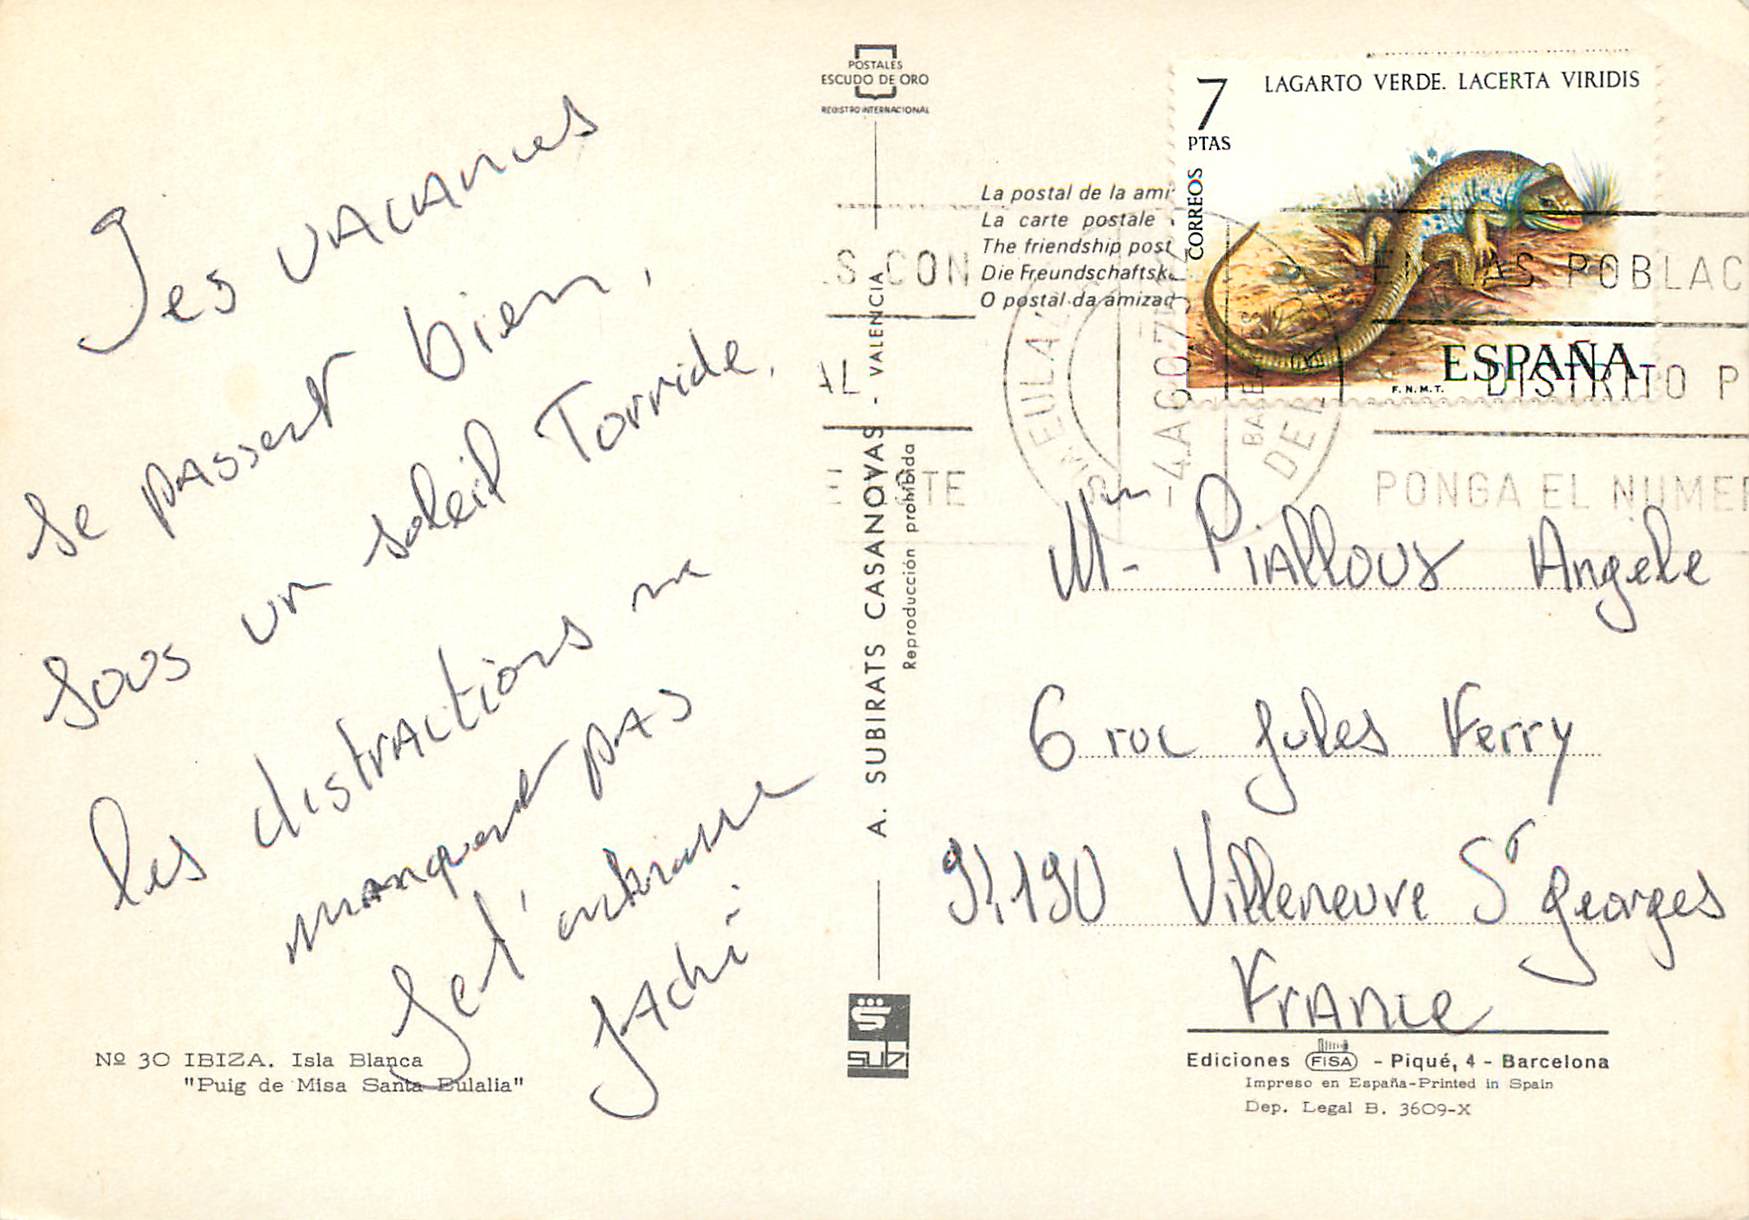 Les vacances
se passent bien,
sous un soleil Torride.
les distractions ne
manquent pas
Je t'embrasse
Jacki
Nº 30 IBIZA. Isla Blanca
"Puig de Misa Santa Eulalia"
POSTALES
ESCUDO DE ORO
REGISTRO INTERNACIONAL
A. SUBIRATS CASANOVAS - VALENCIA
Reproducción prohibida
SUBI
La postal de la ami
La carte postale
The friendship post
Die Freundschaftsk
O postal da amizad
7
PTAS
CORREOS
LAGARTO VERDE. LACERTA VIRIDIS
ESPAÑA
F.N.M.T.
S CON
AL
TE
EULA
4 AGO 75
BALE
DEL
EN LAS POBLAC
DISTRITO P
PONGA EL NUMER
Mme Pialloux Angèle
6 rue Jules Ferry
94190 Villeneuve St Georges
France
Ediciones FISA - Piqué, 4 - Barcelona
Impreso en España-Printed in Spain
Dep. Legal B. 3609-X